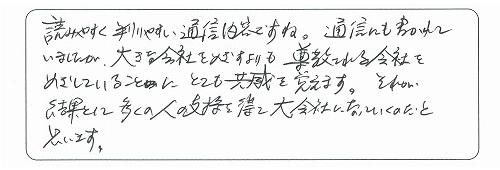 読みやすく判りやすい通信内容ですね。通信にも書かれて
いましたが、大きな会社をめざすよりも尊敬される会社を
めざしていることにとても共感を覚えます。それが
結果として多くの人の支持を得て大会社になっていくのだと
思います。